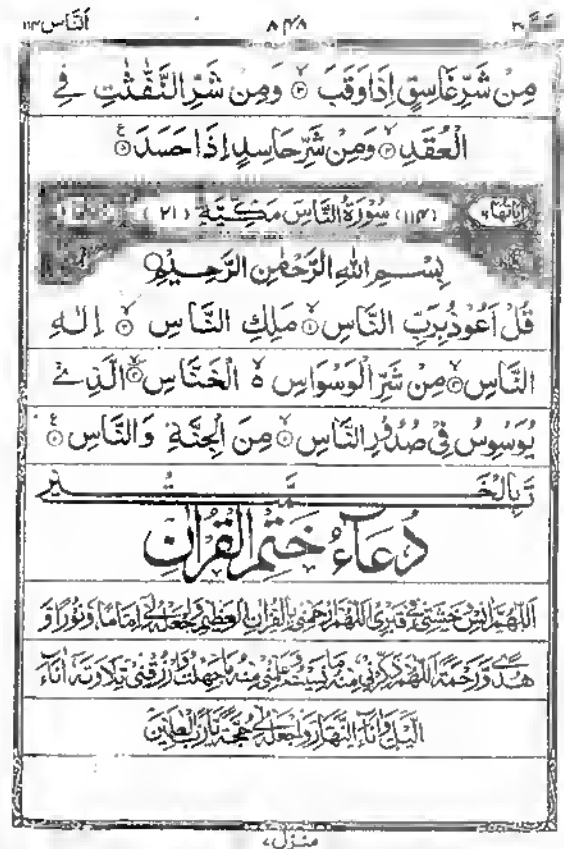 اَلنَّاس ۱۱۴ ۸۴۸ عَمَّ ۳۰
مِنْ شَرِّ غَاسِقٍ اِذَا وَقَبَ ۙ﴿۳﴾ وَمِنْ شَرِّ النَّفّٰثٰتِ فِی
الْعُقَدِ ۙ﴿۴﴾ وَمِنْ شَرِّ حَاسِدٍ اِذَا حَسَدَ ﴿۵﴾
اٰیَاتُهَا ۶ (۱۱۴) سُوْرَةُ النَّاسِ مَكِّيَّةٌ (۲۱)
بِسْمِ اللهِ الرَّحْمٰنِ الرَّحِيْمِ
قُلْ اَعُوْذُ بِرَبِّ النَّاسِ ۙ﴿۱﴾ مَلِكِ النَّاسِ ۙ﴿۲﴾ اِلٰهِ
النَّاسِ ۙ﴿۳﴾ مِنْ شَرِّ الْوَسْوَاسِ ۙ۬ الْخَنَّاسِ ۪ۙ﴿۴﴾ الَّذِیْ
یُوَسْوِسُ فِیْ صُدُوْرِ النَّاسِ ۙ﴿۵﴾ مِنَ الْجِنَّةِ وَالنَّاسِ ﴿۶﴾
تَمَّتْ بِالْخَیْرِ
دُعَآءُ خَتْمِ الْقُرْاٰنِ
اَللّٰهُمَّ اٰنِسْ وَحْشَتِیْ فِیْ قَبْرِیْ اَللّٰهُمَّ ارْحَمْنِیْ بِالْقُرْاٰنِ الْعَظِیْمِ وَاجْعَلْهُ لِیْ اِمَامًا وَّنُوْرًا وَّ
هُدًی وَّرَحْمَةً اَللّٰهُمَّ ذَكِّرْنِیْ مِنْهُ مَا نَسِیْتُ وَعَلِّمْنِیْ مِنْهُ مَا جَهِلْتُ وَارْزُقْنِیْ تِلَاوَتَهٗ اٰنَآءَ
الَّیْلِ وَاٰنَآءَ النَّهَارِ وَاجْعَلْهُ لِیْ حُجَّةً یَّا رَبَّ الْعٰلَمِیْنَ
منزل ۷